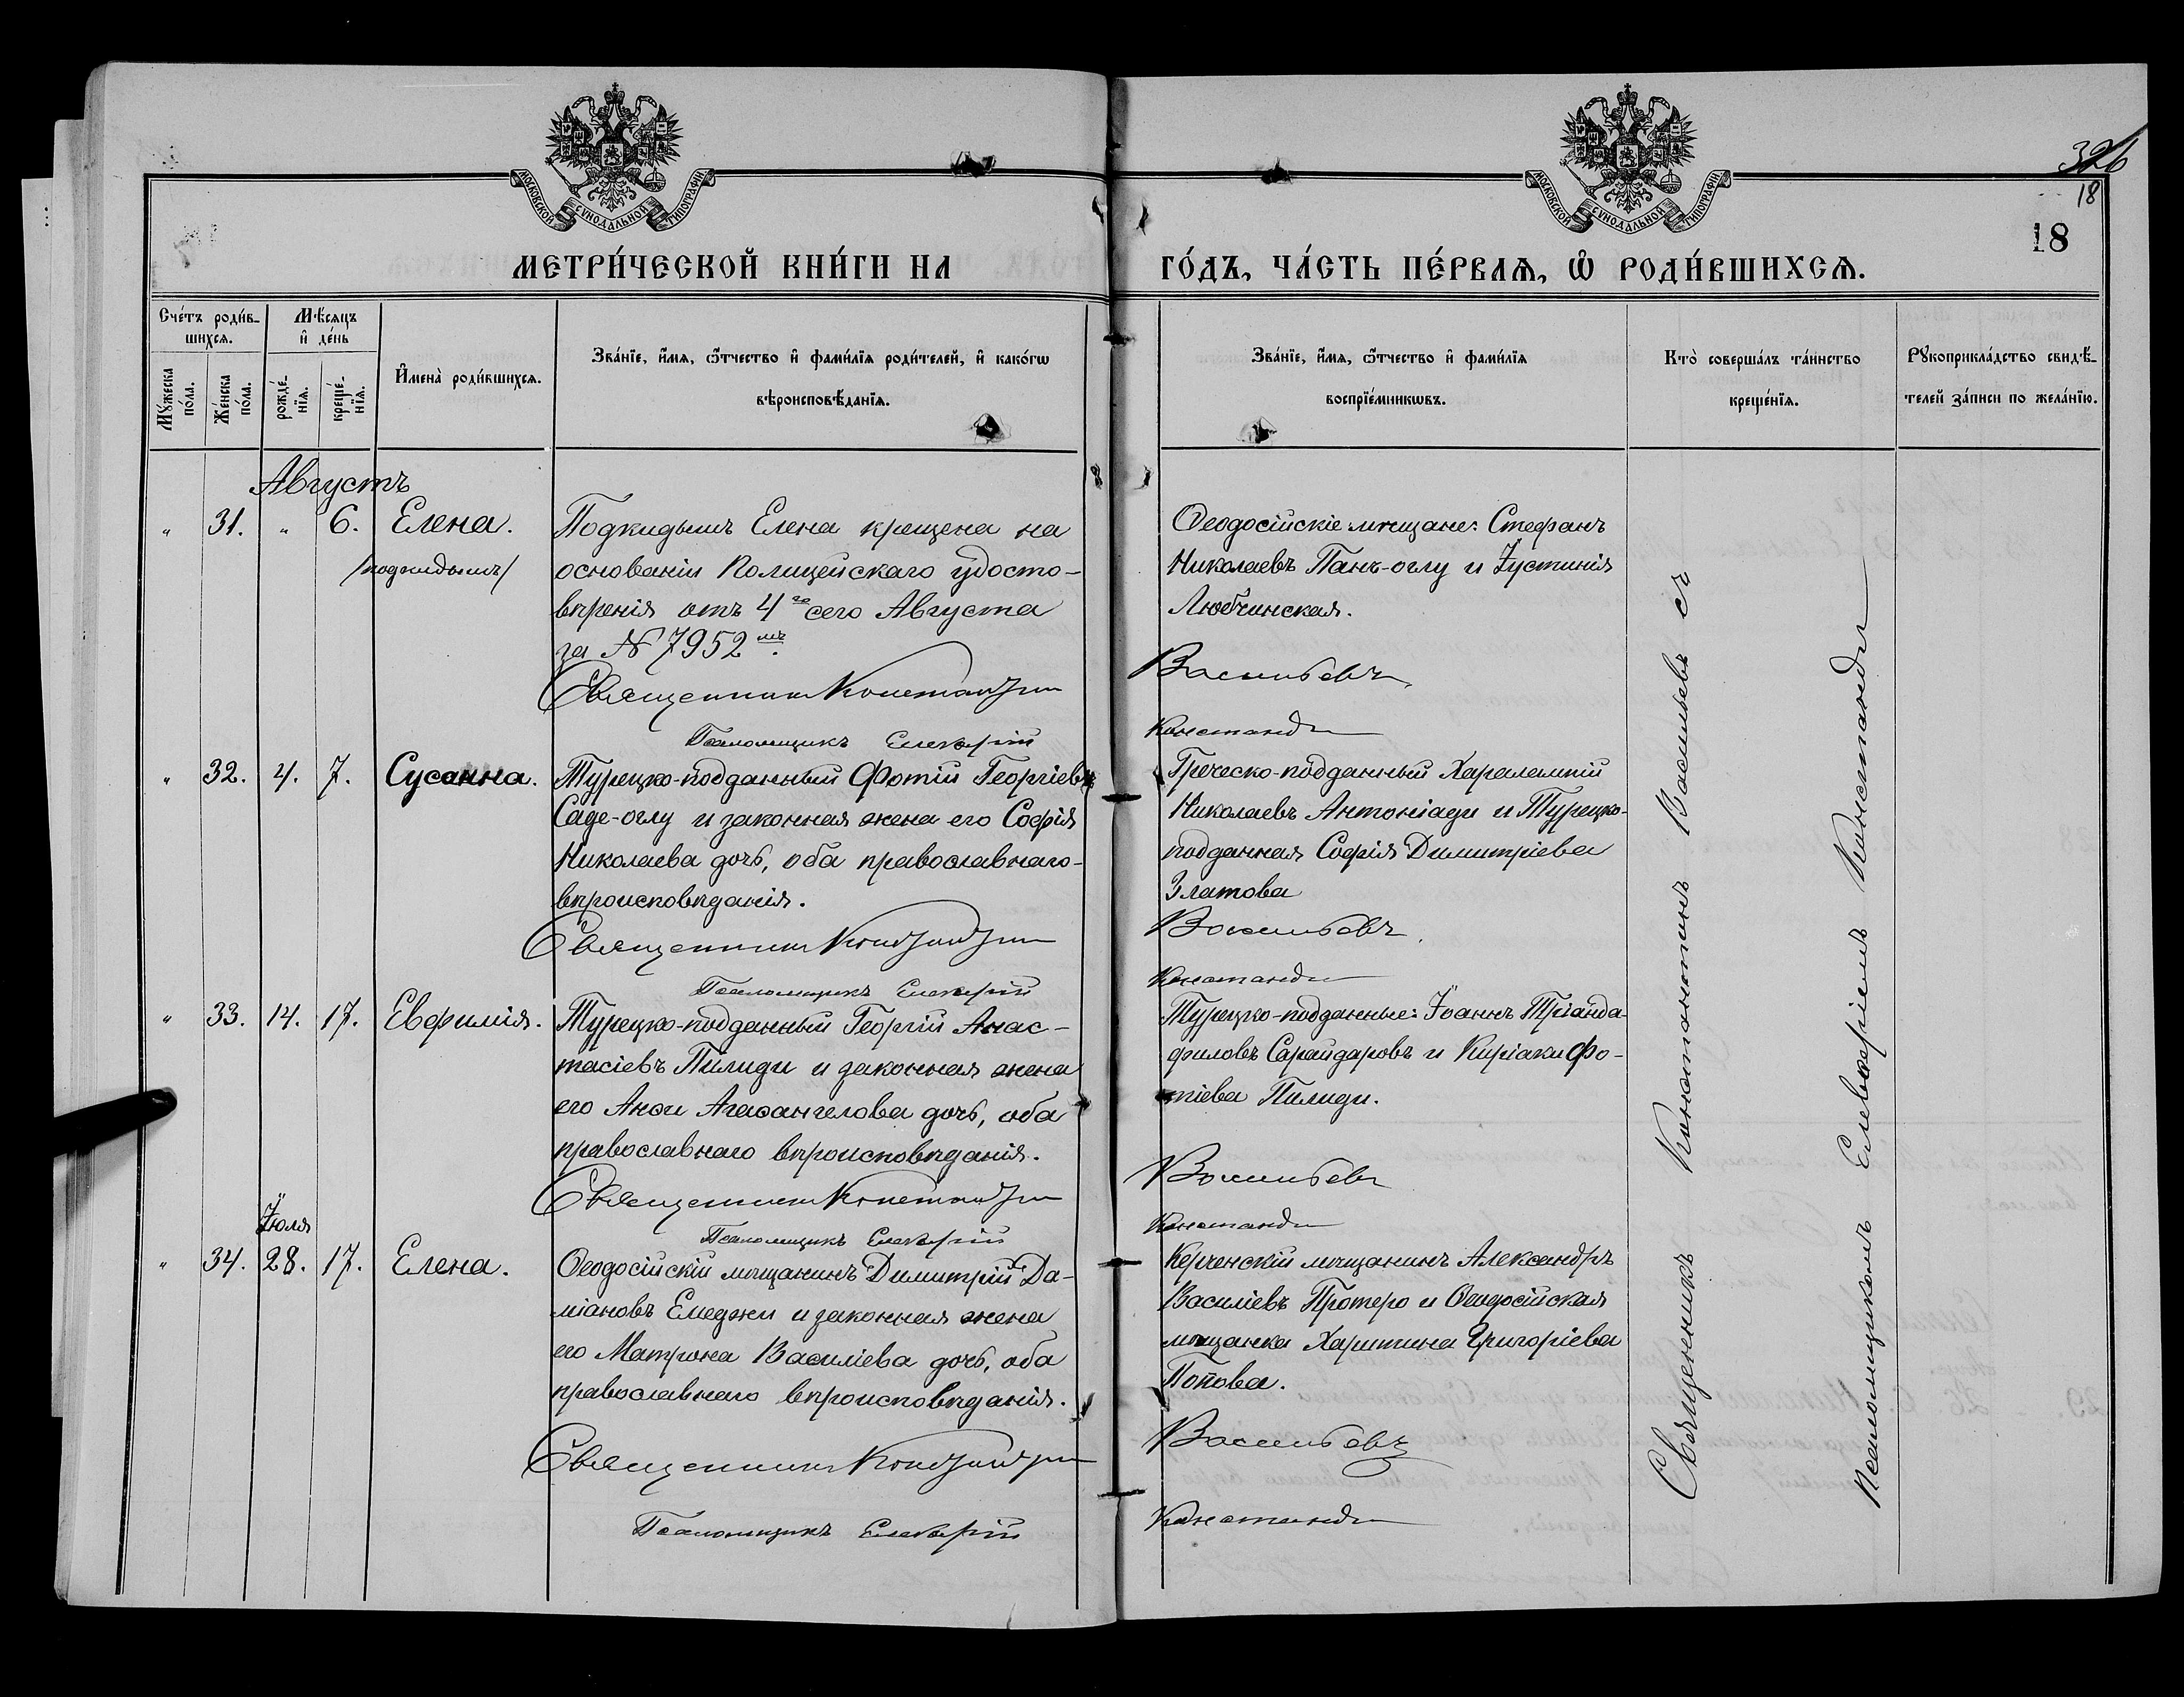 МОСКОВСКОЙ СѴНОДАЛЬНОЙ ТИПОГРАФІИ
МОСКОВСКОЙ СѴНОДАЛЬНОЙ ТИПОГРАФІИ
326
18
18
МЕТРИ́ЧЕСКОЙ КНИ́ГИ НА
ГО́ДЪ, ЧА́СТЬ ПЕ́РВАѦ, Ѽ РОДИ́ВШИХСѦ.
Сче́тъ роди́в-
шихсѧ.
Мꙋжеска по́ла.
Же́нска по́ла.
Мѣ́сяцъ
и҆ де́нь
рожде́-
нїѧ.
креще́-
нїѧ.
И҆мена̀ роди́вшихсѧ.
Зва́нїе, и҆́мѧ, ѻ҆́тчество и҆ фами́лїѧ роди́телей, и҆ како́гѡ
вѣроисповѣ́данїѧ.
Зва́нїе, и҆́мѧ, ѻ҆́тчество и҆ фами́лїѧ
воспрїе́мникѡвъ.
Кто̀ соверша́лъ та́инство
креще́нїѧ.
Рꙋкоприкла́дство свидѣ́-
телей за́писи по жела́нїю.
Августъ
" 31. " 6. Елена.
/подкидышъ/
Подкидышъ Елена крещена на
основаніи Полицейскаго удосто-
вѣренія отъ 4го сего Августа
за № 7952мъ.
Священникъ Константинъ
Васильевъ
Псаломщикъ Елевферій
Констанди
Ѳеодосійскіе мѣщане: Стефанъ
Николаевъ Панъ-оглу и Іустинія
Любчинская.
" 32. 4. 7. Сусанна.
Турецко-подданный Фотій Георгіевъ
Саде-оглу и законная жена его Софія
Николаева дочь, оба православнаго-
вѣроисповѣданія.
Священникъ Константинъ
Васильевъ
Псаломщикъ Елевферій
Констанди
Греческо-подданный Харалампій
Николаевъ Антоніади и Турецко-
подданная Софія Димитріева
Златова
" 33. 14. 17. Евфимія.
Турецко-подданный Георгій Анас-
тасіевъ Пилиди и законная жена
его Анѳи Агаѳангелова дочь, оба
православнаго вѣроисповѣданія.
Священникъ Константинъ
Васильевъ
Псаломщикъ Елевферій
Констанди
Турецко-подданные: Іоаннъ Тріанда-
филовъ Сарайдаровъ и Киріаки Фо-
тіева Пилиди.
Іюля
" 34. 28. 17. Елена.
Ѳеодосійскій мѣщанинъ Димитрій Да-
міановъ Емеджи и законная жена
его Матрона Василіева дочь, оба
православнаго вѣроисповѣданія.
Священникъ Константинъ
Васильевъ
Псаломщикъ Елевферій
Констанди
Керченскій мѣщанинъ Александръ
Василіевъ Протеро и Ѳеодосійская
мѣщанка Харитина Григоріева
Попова.
Священникъ Константинъ Васильевъ съ
Псаломщикомъ Елевферіемъ Констанди